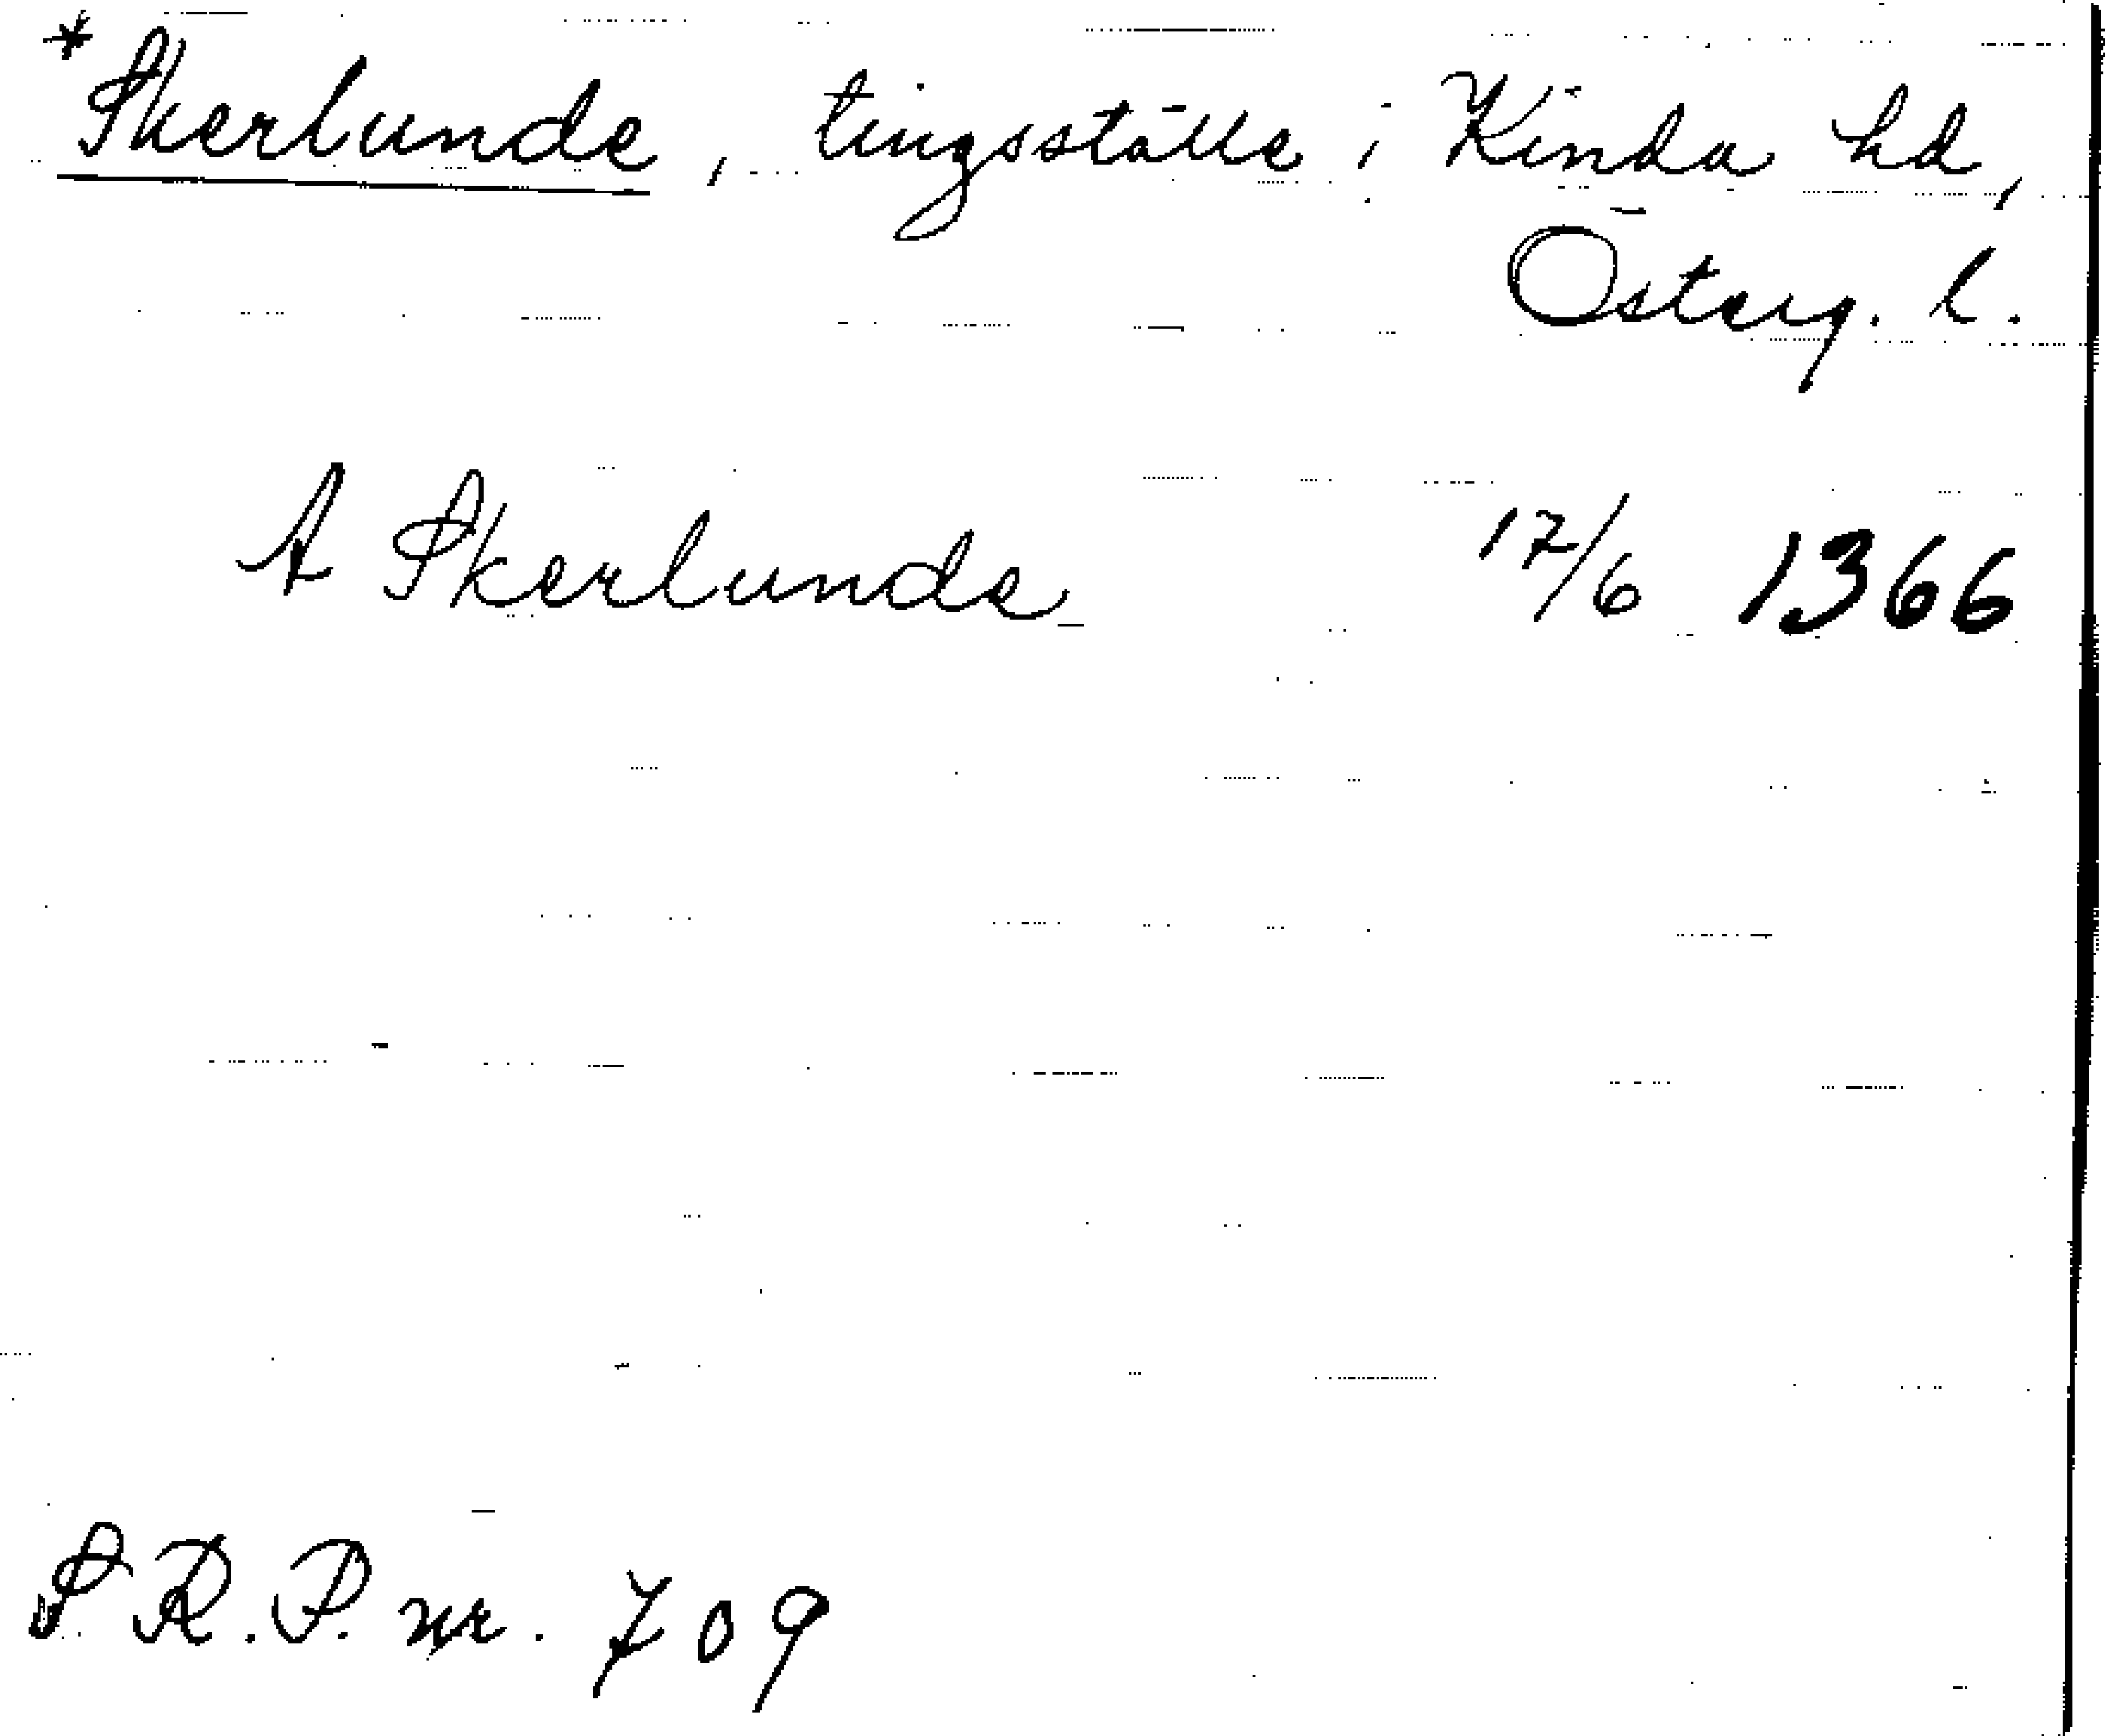 *Skerlunde, tingsställe i Kinda hd,
Österg. l.
A Skerlunde 17/6 1366
S R.P. nr. 709